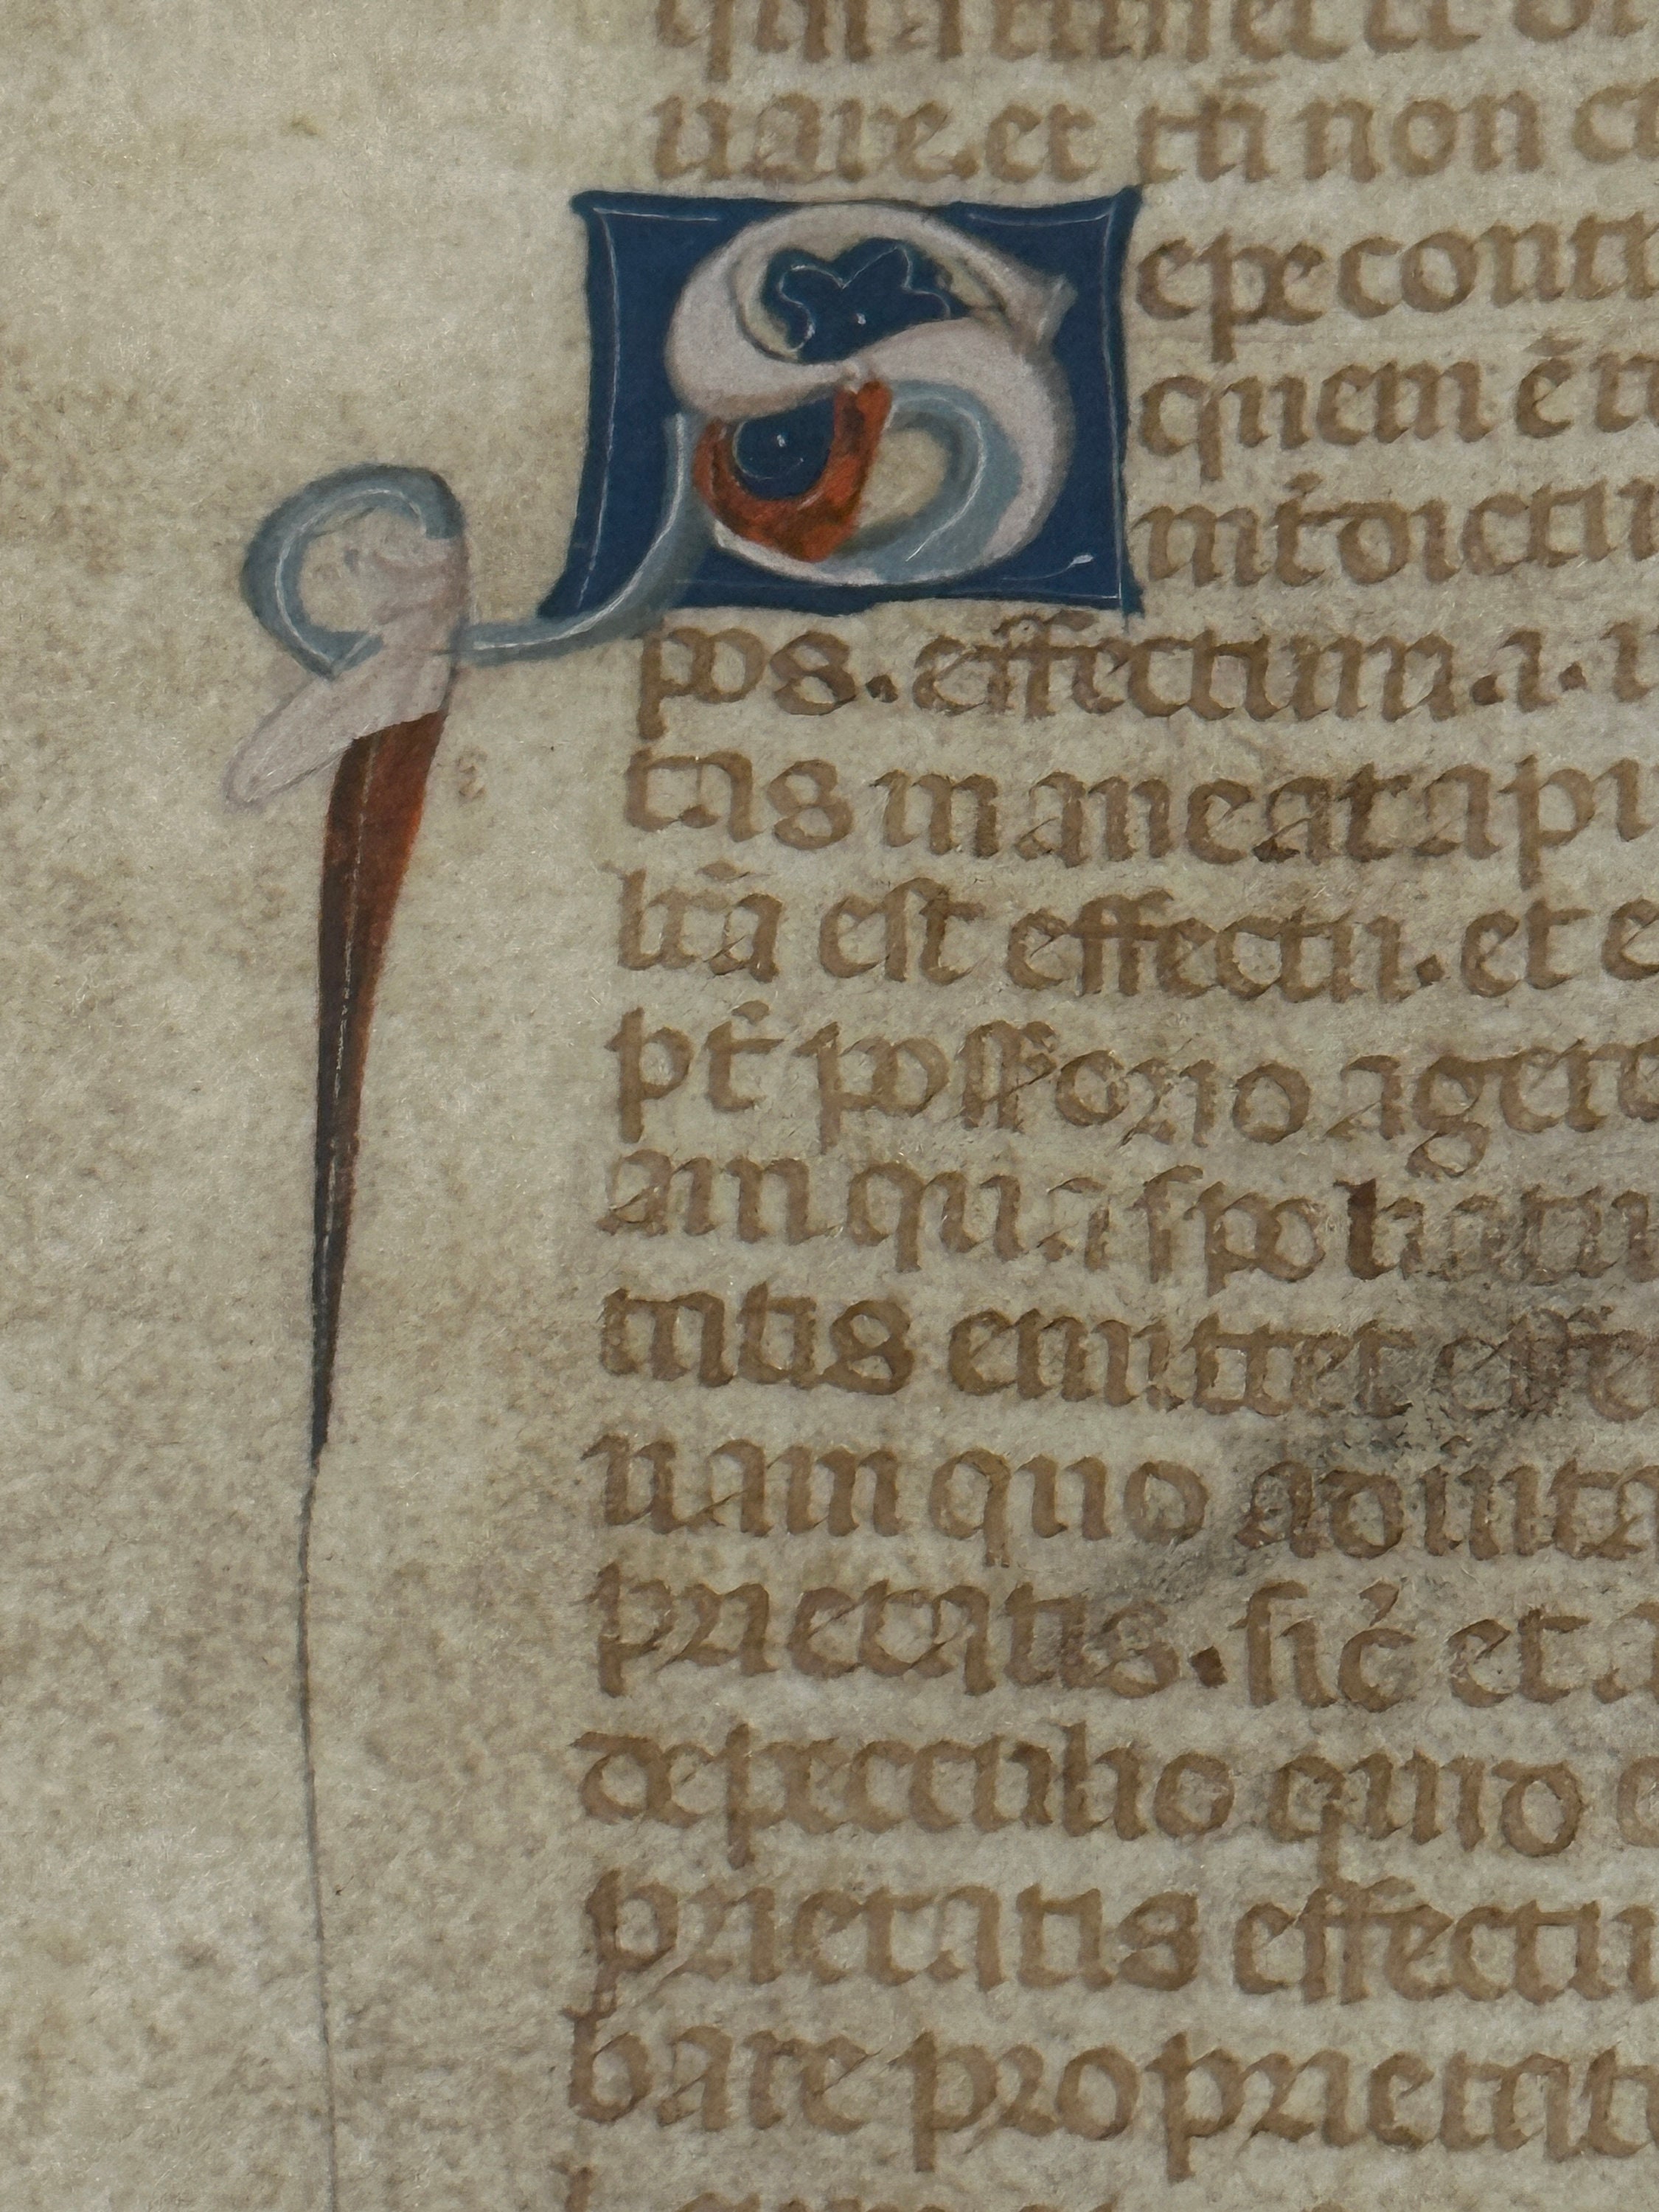 uare. et tn̄ non
Sepe conti
quem ē
int̓dictu
pos. effectum .i.
tas maneat apu
lr̄a est effectu. et e
pt̓ possorio agere
am qua spoliatu
ritis emittet effe
uam quo ad uita
prietatis. sic̓ et a
de peculio quid
prietatis effectu
bare proprietat